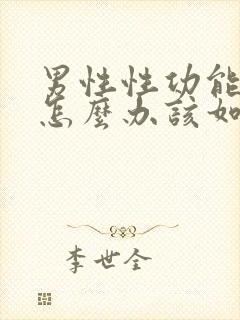 男性性功能
怎麼办該如
李世全